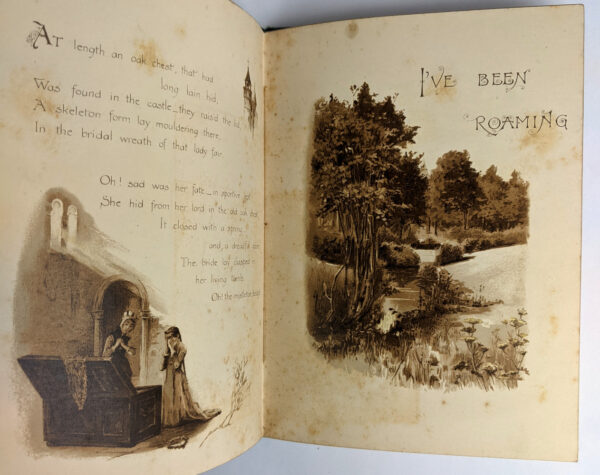 At length an oak chest, that had
long lain hid,
Was found in the castle_they raised the lid,
A skeleton form lay mouldering there,
In the bridal wreath of that lady fair
Oh! sad was her fate_in sportive jest
She hid from her lord in the old oak chest
It closed with a spring
and, a dreadful doom
The bride lay clasped in
her living tomb.
Oh! the mistletoe bough
I'VE BEEN
ROAMING